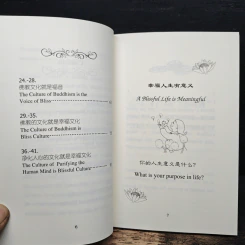 24.-28.
佛教文化就是福音
The Culture of Buddhism is the
Voice of Bliss
29.-35.
佛教的文化就是幸福文化
The Culture of Buddhism is
Bliss Culture
36.-41.
净化人心的文化就是幸福文化
The Culture of Purifying the
Human Mind is Blissful Culture
6
幸福人生有意义
A Blissful Life is Meaningful
你的人生意义是什么?
What is your purpose in life?
7